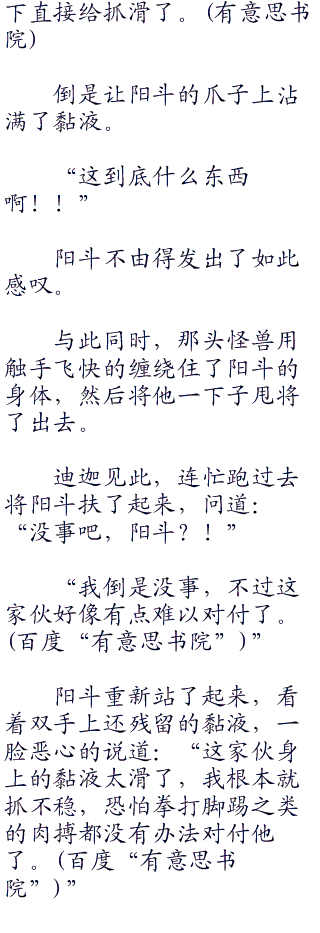 下直接给抓滑了。(有意思书
院)
倒是让阳斗的爪子上沾
满了黏液。
“这到底什么东西
啊！！”
阳斗不由得发出了如此
感叹。
与此同时，那头怪兽用
触手飞快的缠绕住了阳斗的
身体，然后将他一下子甩将
了出去。
迪迦见此，连忙跑过去
将阳斗扶了起来，问道：
“没事吧，阳斗？！”
“我倒是没事，不过这
家伙好像有点难以对付了。
(百度“有意思书院”)”
阳斗重新站了起来，看
着双手上还残留的黏液，一
脸恶心的说道：“这家伙身
上的黏液太滑了，我根本就
抓不稳，恐怕拳打脚踢之类
的肉搏都没有办法对付他
了。(百度“有意思书
院”)”